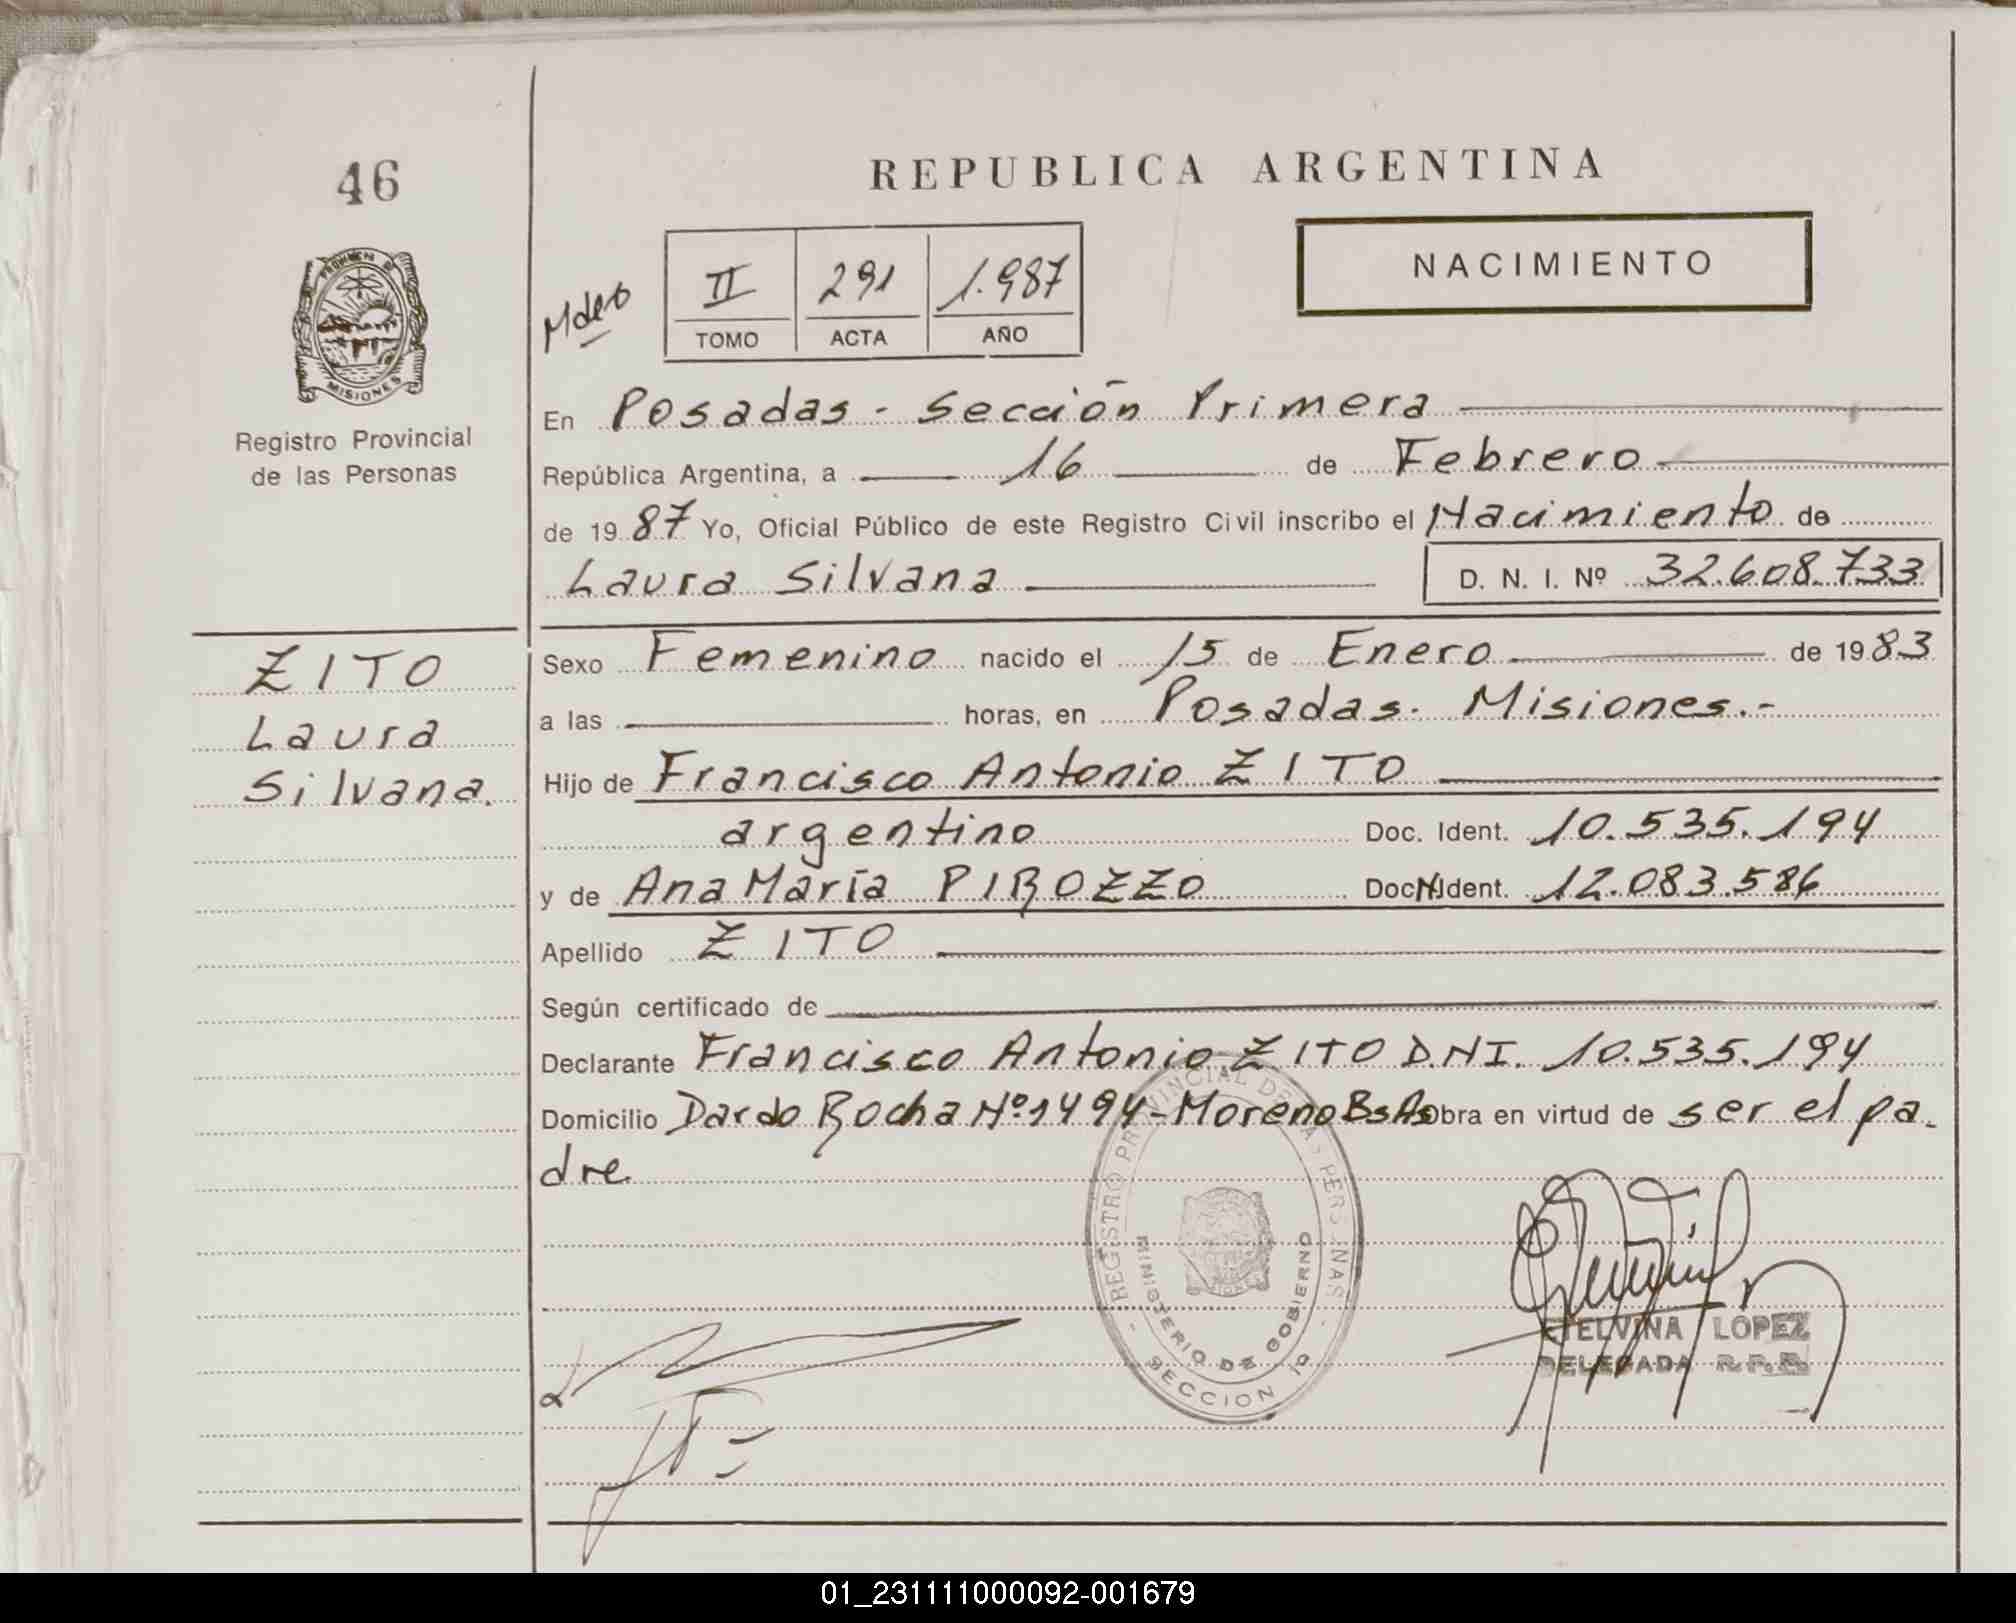 46
REPUBLICA ARGENTINA
NACIMIENTO
II 291 1.987
TOMO ACTA AÑO
PROVINCIA DE
MISIONES
Registro Provincial
de las Personas
En Posadas - Sección Primera
República Argentina, a 16 de Febrero
de 1987 Yo, Oficial Público de este Registro Civil inscribo el Nacimiento de
Laura Silvana D. N. I. Nº 32.608.733
ZITO
Laura
Silvana.
Sexo Femenino nacido el 15 de Enero de 1983
a las horas, en Posadas. Misiones.-
Hijo de Francisco Antonio ZITO
argentino Doc. Ident. 10.535.194
y de Ana María PIROZZO Doc. Ident. 12.083.586
Apellido ZITO
Según certificado de
Declarante Francisco Antonio ZITO D.NI. 10.535.194
Domicilio Dardo Rocha Nº 1494-Moreno Bs As Obra en virtud de ser el pa-
dre.
- REGISTRO PROVINCIAL DE LAS PERSONAS -
MINISTERIO DE GOBIERNO
SECCION 1º
ETELVINA LOPEZ
DELEGADA R.P.P.
01_231111000092-001679